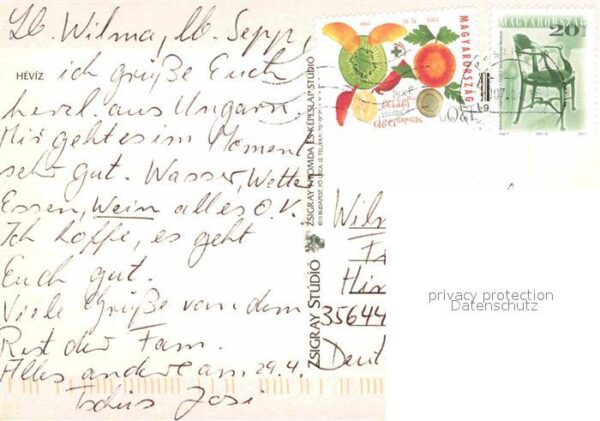 Lb. Wilma, lb. Sepp,
HÉVÍZ
ich grüße Euch
herzl. aus Ungarn.
Mir geht es im Moment
sehr gut. Wasser, Wetter
Essen, Wein alles O.K.
Ich hoffe, es geht
Euch gut.
Viele Grüße von dem
Rest der Fam.
Alles andere am 29.4.
Tschüs Josi
ZSIGRAY STÚDIÓ
ZSIGRAY NYOMDA ÉS KÉPESLAP STÚDIÓ
MAGYARORSZÁG
MAGYARORSZÁG
20
Wilm
Fa
Hin
35644
Deut
privacy protection
Datenschutz